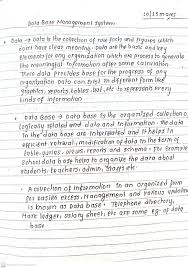 10/15 mores
Data Base Management System
• Data → Data is the collection of raw facts and figures which
don't have clear meaning. Data are the basic and key
Elements for any organization which are process to generate
the meaningful information after some conversion.
These data provides base for the progress of any
organization. Data can exist in different form like
graphics, reports, tables, text, etc to represent every
kinds of information.
• Data Base → Data base is the organized collection of
logically related data and information. The data in
the data base are interrelated and it helps in
efficient retrieval, modification of data to the form of
table, queries, reports and schema. For Example
School data base helps to organize the data about
students, teachers, admin, Exams etc.
• A collection of information to an organized form
for easier excess, Management and various updation
is known as data base. Telephone directory,
Mark ledger, salary sheet etc are some eg of data
base